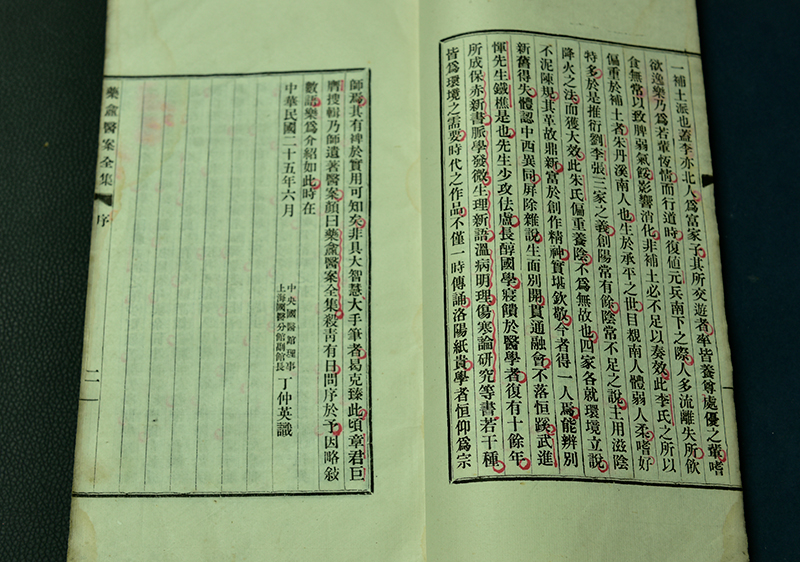 一補土派也蓋李亦北人爲富家子其所交遊者率皆養尊處優之輩嗜
欲逸樂乃爲若輩恆情而行道時復値元兵南下之際人多流離失所飲
食無常以致脾弱氣餒影響消化非補土必不足以奏效此李氏之所以
偏重於補土者朱丹溪南人也生於承平之世目覩南人體弱人柔嗜好
特多於是推衍劉李張三家之義創陽常有餘陰常不足之說主用滋陰
降火之法而獲大效此朱氏偏重養陰不爲無故也四家各就環境立說
不泥陳規其革故鼎新富於創作精神實堪欽敬今者得一人焉能辨別
新舊得失體認中西異同屏除雜說生面別開貫通融會不落恒蹊武進
惲先生鐵樵是也先生少攻佉盧長醇國學寢饋於醫學者復有十餘年
所成保赤新書脈學發微生理新語溫病明理傷寒論研究等書若干種
皆爲環境之需要時代之作品不僅一時傳誦洛陽紙貴學者恒仰爲宗
師焉其有裨於實用可知矣非具大智慧大手筆者曷克臻此頃章君巨
膺搜輯乃師遺著醫案顏曰藥盦醫案全集殺靑有日問序於予因略敍
數語樂爲介紹如此時在
中華民國二十五年六月
中央國醫館理事
上海國醫分館副館長
丁仲英識
藥盦醫案全集
序
二